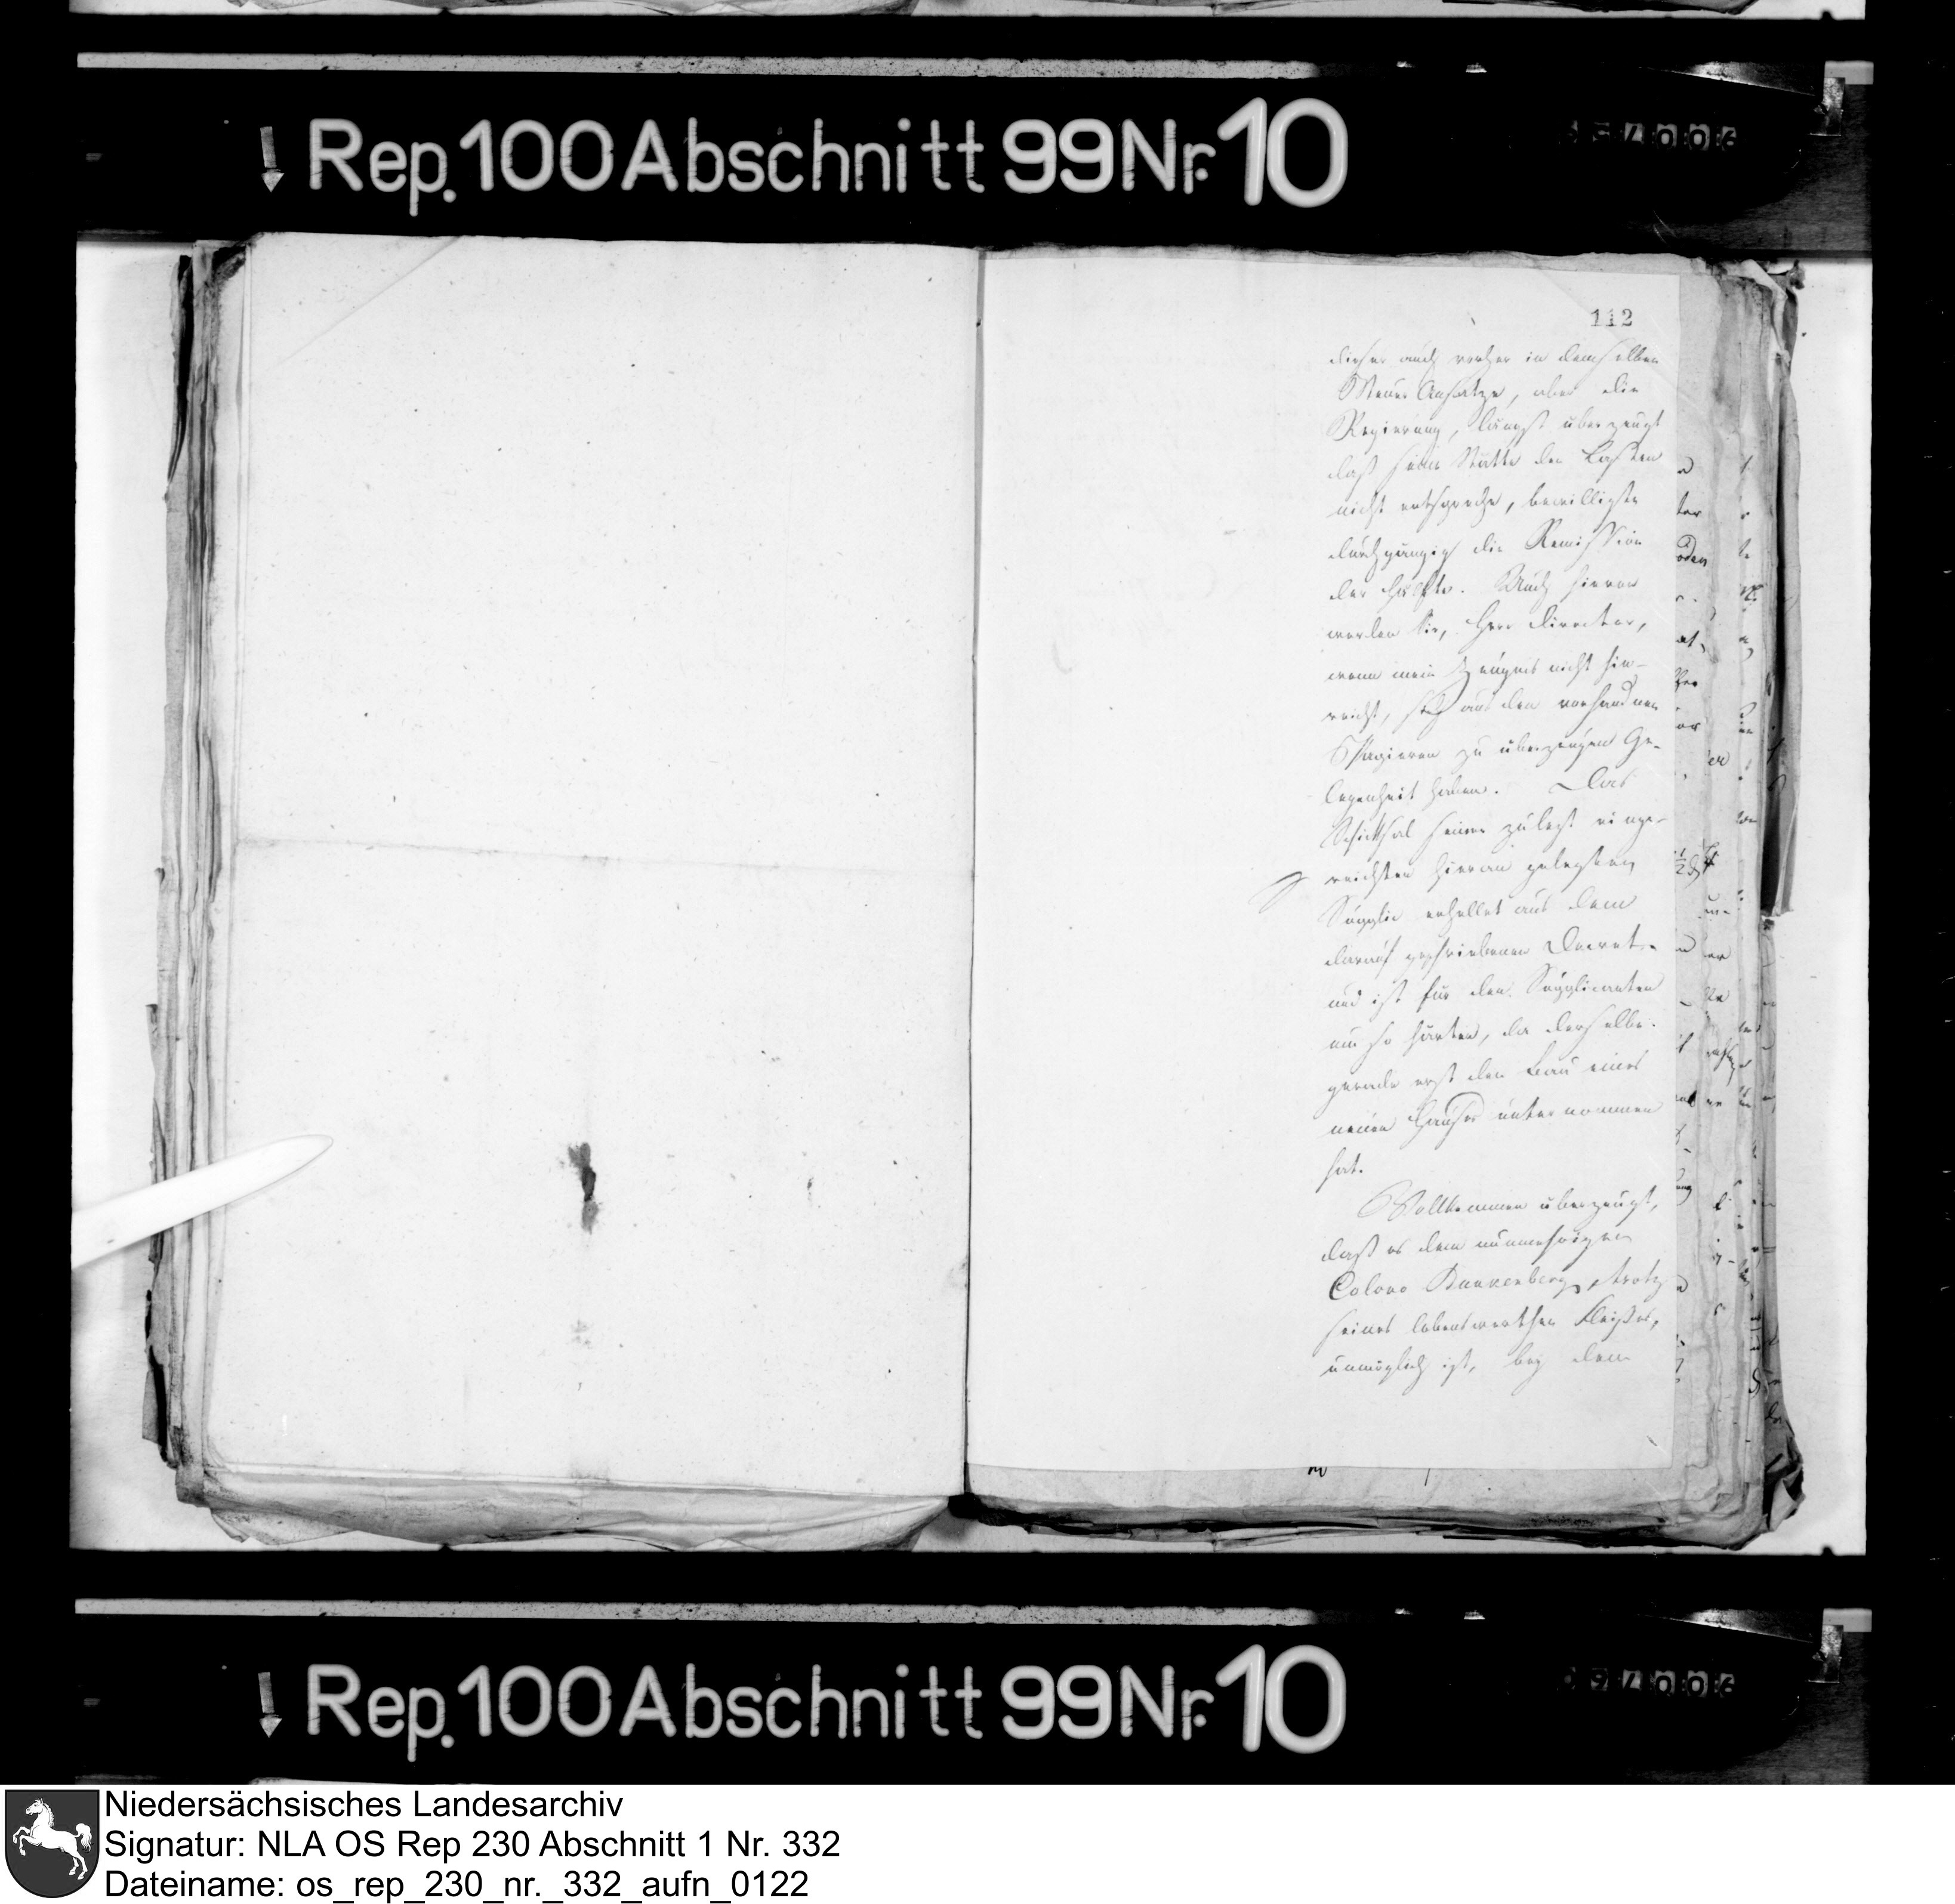 Rep. 100 Abschnitt 99 Nr. 10
112
dieser auch vorher in demselben
Steuer Ansatze, aber die
Regierung, längst überzeugt
daß seine Stätte den Lasten
nicht entspreche, bewilligte
durchgängig die Remission
der Hälfte. Auch hievon
werden Sie, Herr Director,
wenn mein Zeugnis nicht hin-
reicht, sich aus den vorhandnen
Papieren zu überzeugen Ge-
legenheit haben. Das
Schicksal seiner zuletzt einge-
reichten hieran gelegten
Supplic erhellet aus dem
darauf geschriebenen Decret.
und ist für den Supplicanten
um so härter, da derselbe
gerade erst den Bau eines
neuen Hauses unternommen
hat.
Vollkommen überzeugt,
daß es dem nunmehrigen
Colono Dunkenberg, trotz
seines lobenswerthen Fleißes,
unmöglich ist, bey dem
Rep. 100 Abschnitt 99 Nr. 10
Niedersächsisches Landesarchiv
Signatur: NLA OS Rep 230 Abschnitt 1 Nr. 332
Dateiname: os_rep_230_nr._332_aufn_0122